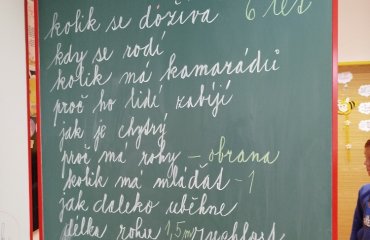 kolik se dožívá 6 let
kdy se rodí
kolik má kamarádů
proč ho lidí zabíjí
jak je chytrý
proč má rohy - obrana
kolik má mláďat - 1
jak daleko uběhne
délka rohu 1,5m rychlost